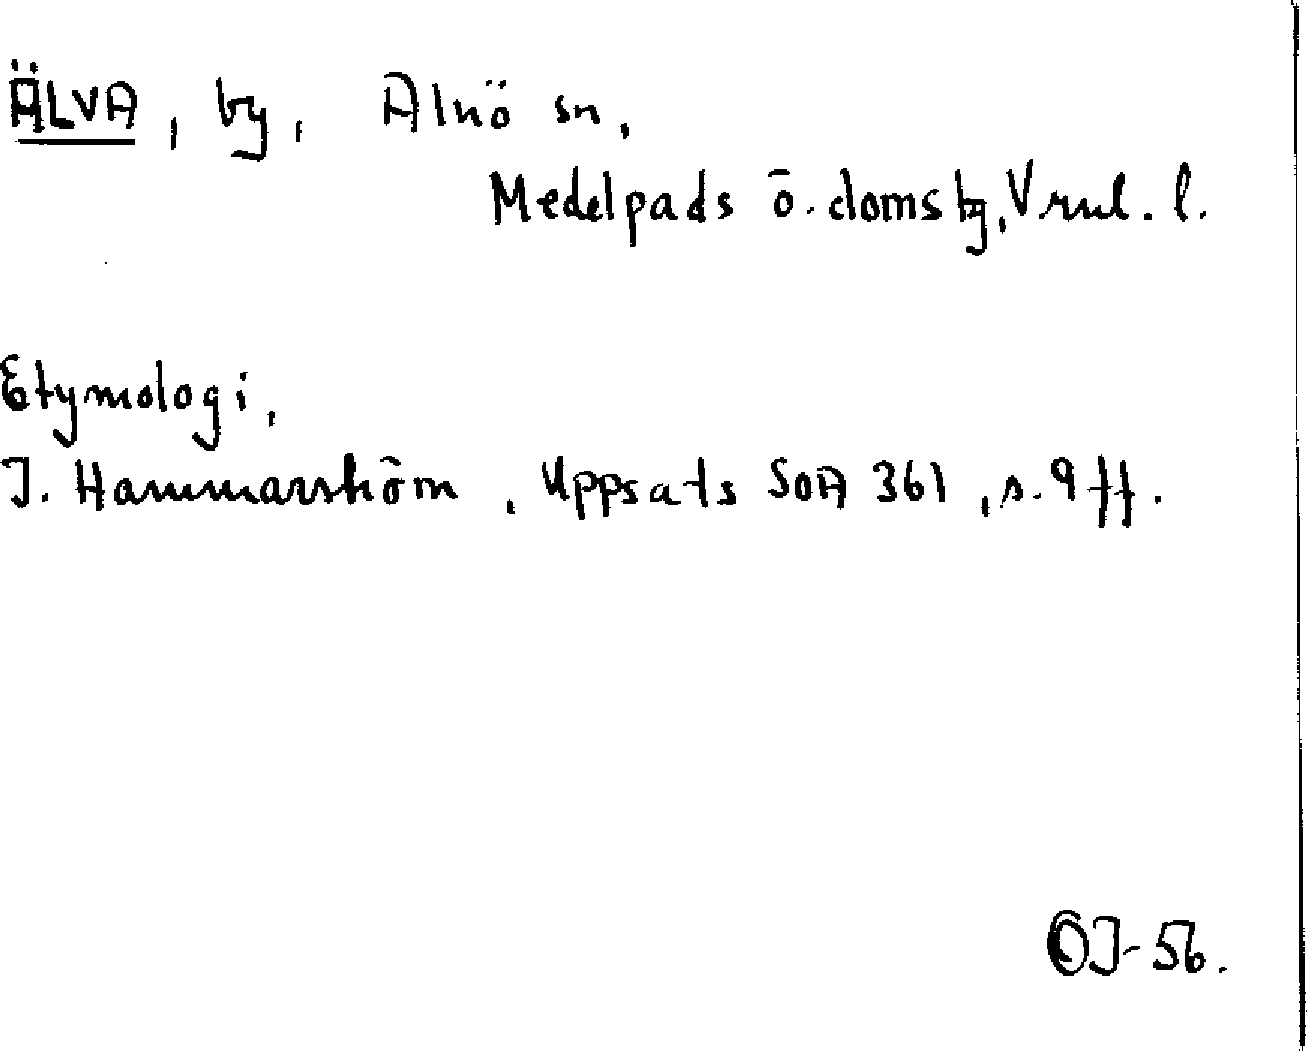 ÄLVA, by, Alnö sn,
Medelpads ö. domsbg, Vrnl. l.
Etymologi,
J. Hammarström, Uppsats SOA 361, s. 9 ff.
OJ-56.